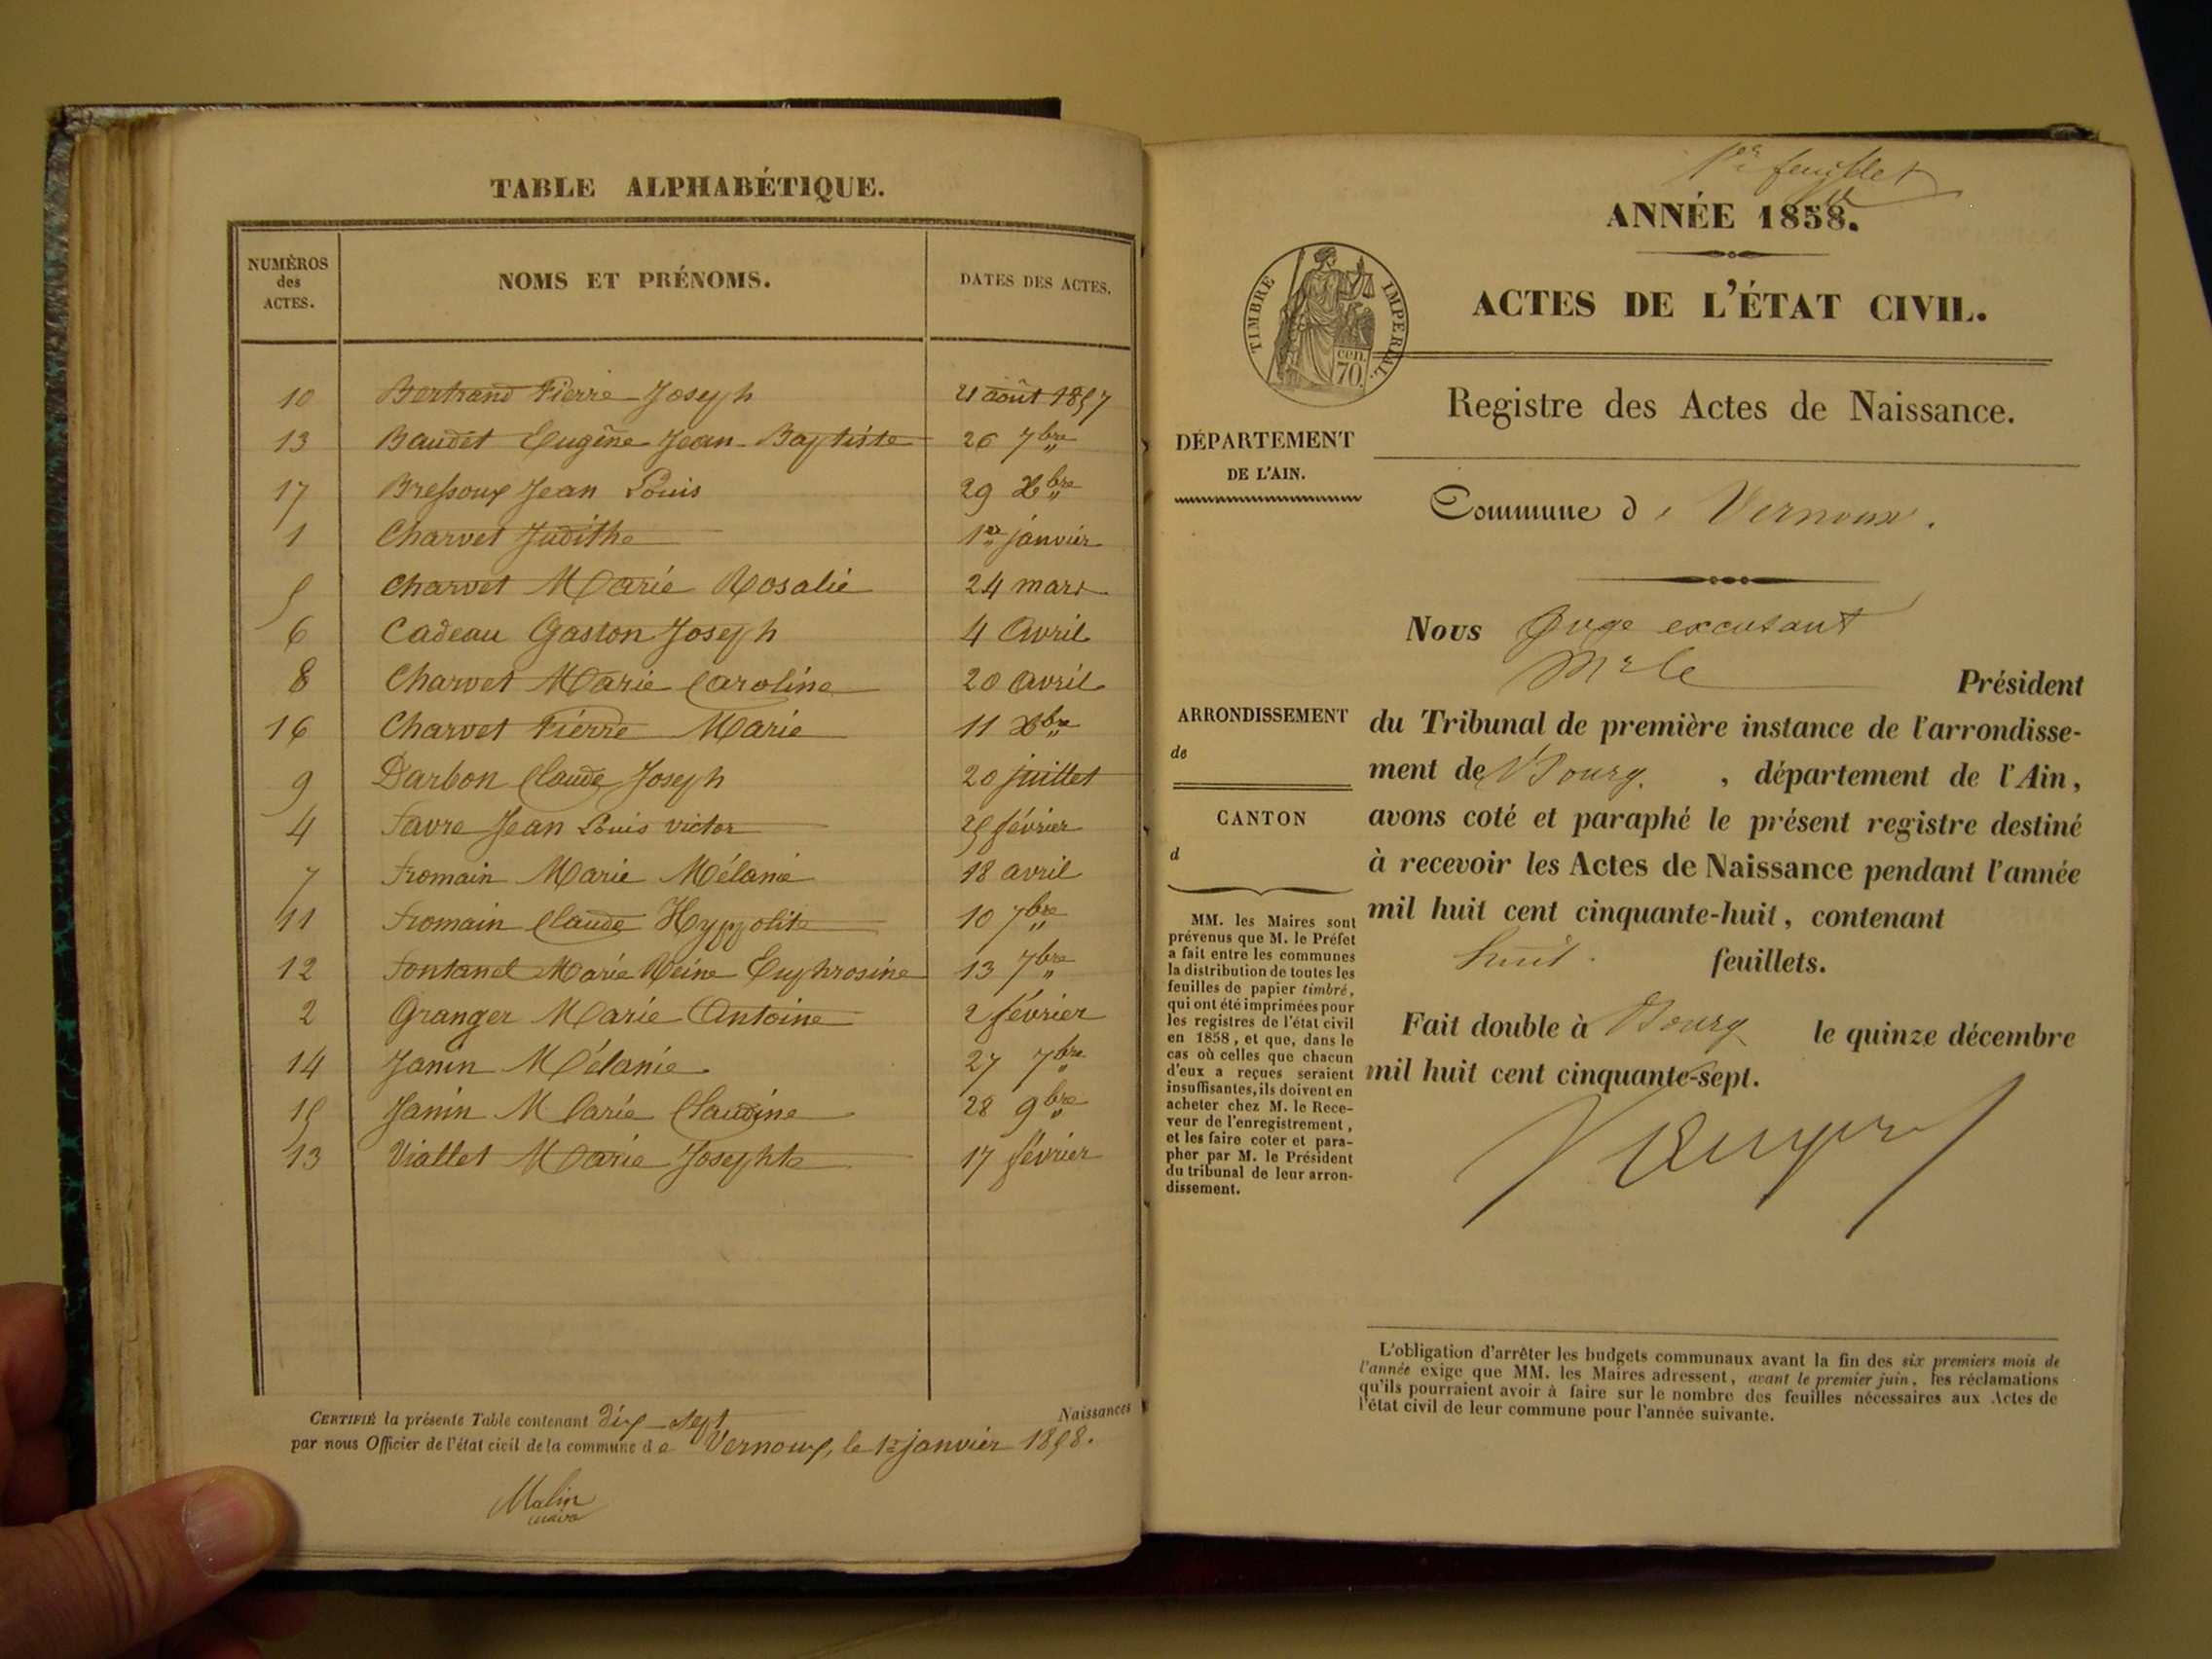 TABLE ALPHABÉTIQUE.
NUMÉROS
des
ACTES.
NOMS ET PRÉNOMS.
DATES DES ACTES.
10 Bertrand Pierre Joseph 21 août 1857
13 Baudet Eugène Jean-Baptiste 26 7bre
17 Bressoux Jean Louis 29 Xbre
1 Charvet Judithe 1er janvier
5 Charvet Marie Rosalie 24 mars
6 Cadeau Gaston Joseph 4 Avril
8 Charvet Marie Caroline 20 avril
16 Charvet Pierre Marie 11 Xbre
9 Darbon Claude Joseph 20 juillet
4 Favre Jean Louis victor 25 février
7 Fromain Marie Mélanie 18 avril
11 Fromain Claude Hyppolite 10 7bre
12 Fontanel Marie Reine Euphrosine 13 7bre
2 Granger Marie Antoine 2 février
14 Janin Mélanie 27 7bre
15 Janin Marie Claudine 28 9bre
13 Viallet Marie Josephte 17 février
CERTIFIÉ la présente Table contenant dix-sept Naissances
par nous Officier de l'état civil de la commune de Vernoux, le 1er janvier 1858.
Malin
maire
1er feuillet
ANNÉE 1858.
TIMBRE IMPERIAL
cen.
70
ACTES DE L'ÉTAT CIVIL.
Registre des Actes de Naissance.
DÉPARTEMENT
DE L'AIN.
Commune de Vernoux.
Nous Juge excusant
Mr le Président
ARRONDISSEMENT
de
CANTON
d
du Tribunal de première instance de l'arrondisse-
ment de Bourg. , département de l'Ain,
avons coté et paraphé le présent registre destiné
à recevoir les Actes de Naissance pendant l'année
mil huit cent cinquante-huit, contenant
huit. feuillets.
Fait double à Bourg le quinze décembre
mil huit cent cinquante-sept.
MM. les Maires sont
prévenus que M. le Préfet
a fait entre les communes
la distribution de toutes les
feuilles de papier timbré,
qui ont été imprimées pour
les registres de l'état civil
en 1858, et que, dans le
cas où celles que chacun
d'eux a reçues seraient
insuffisantes, ils doivent en
acheter chez M. le Rece-
veur de l'enregistrement,
et les faire coter et para-
pher par M. le Président
du tribunal de leur arron-
dissement.
L'obligation d'arrêter les budgets communaux avant la fin des six premiers mois de
l'année exige que MM. les Maires adressent, avant le premier juin, les réclamations
qu'ils pourraient avoir à faire sur le nombre des feuilles nécessaires aux Actes de
l'état civil de leur commune pour l'année suivante.